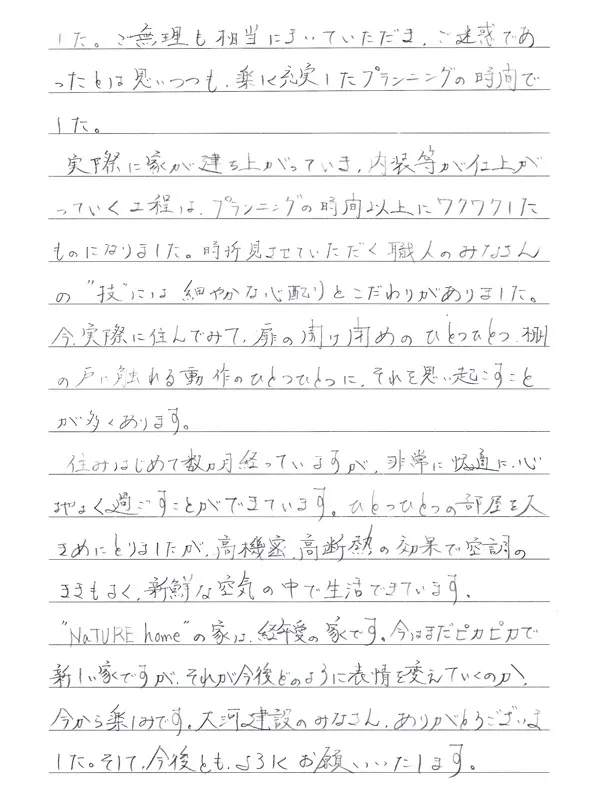 した。ご無理も相当にきいていただき、ご迷惑であ
ったとは思いつつも、楽しく充実したプランニングの時間で
した。
実際に家が建ち上がっていき、内装等が仕上が
っていく工程は、プランニングの時間以上にワクワクした
ものになりました。時折見させていただく職人のみなさん
の"技"には細やかな心配りとこだわりがありました。
今、実際に住んでみて、扉の開け閉めのひとつひとつ、棚
の戸に触れる動作のひとつひとつに、それを思い起こすこと
が多くあります。
住みはじめて数カ月経っていますが、非常に快適に、心
地よく過ごすことができています。ひとつひとつの部屋を大
きめにとりましたが、高機密、高断熱の効果で空調の
ききもよく、新鮮な空気の中で生活できています。
"NaTURE home"の家は、経年愛の家です。今はまだピカピカで
新しい家ですが、それが今後どのように表情を変えていくのか、
今から楽しみです。大河建設のみなさん、ありがとうございま
した。そして、今後とも、よろしくお願いいたします。